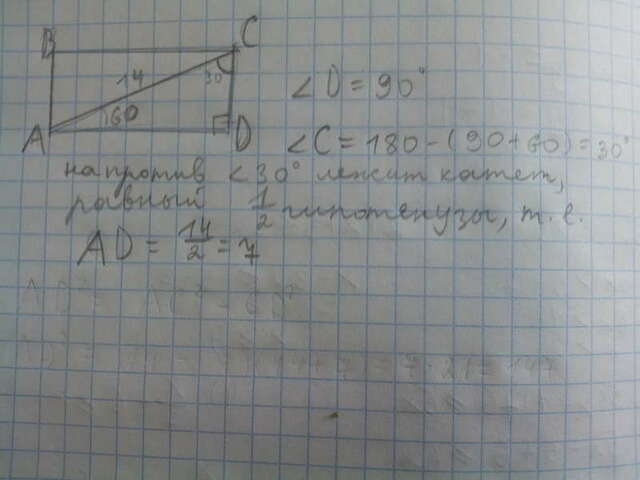 B C
14 30
A 60 D
∠D = 90°
∠C = 180 - (90 + 60) = 30°
напротив ∠30° лежит катет,
равный 1/2 гипотенузы, т. е.
AD = 14/2 = 7